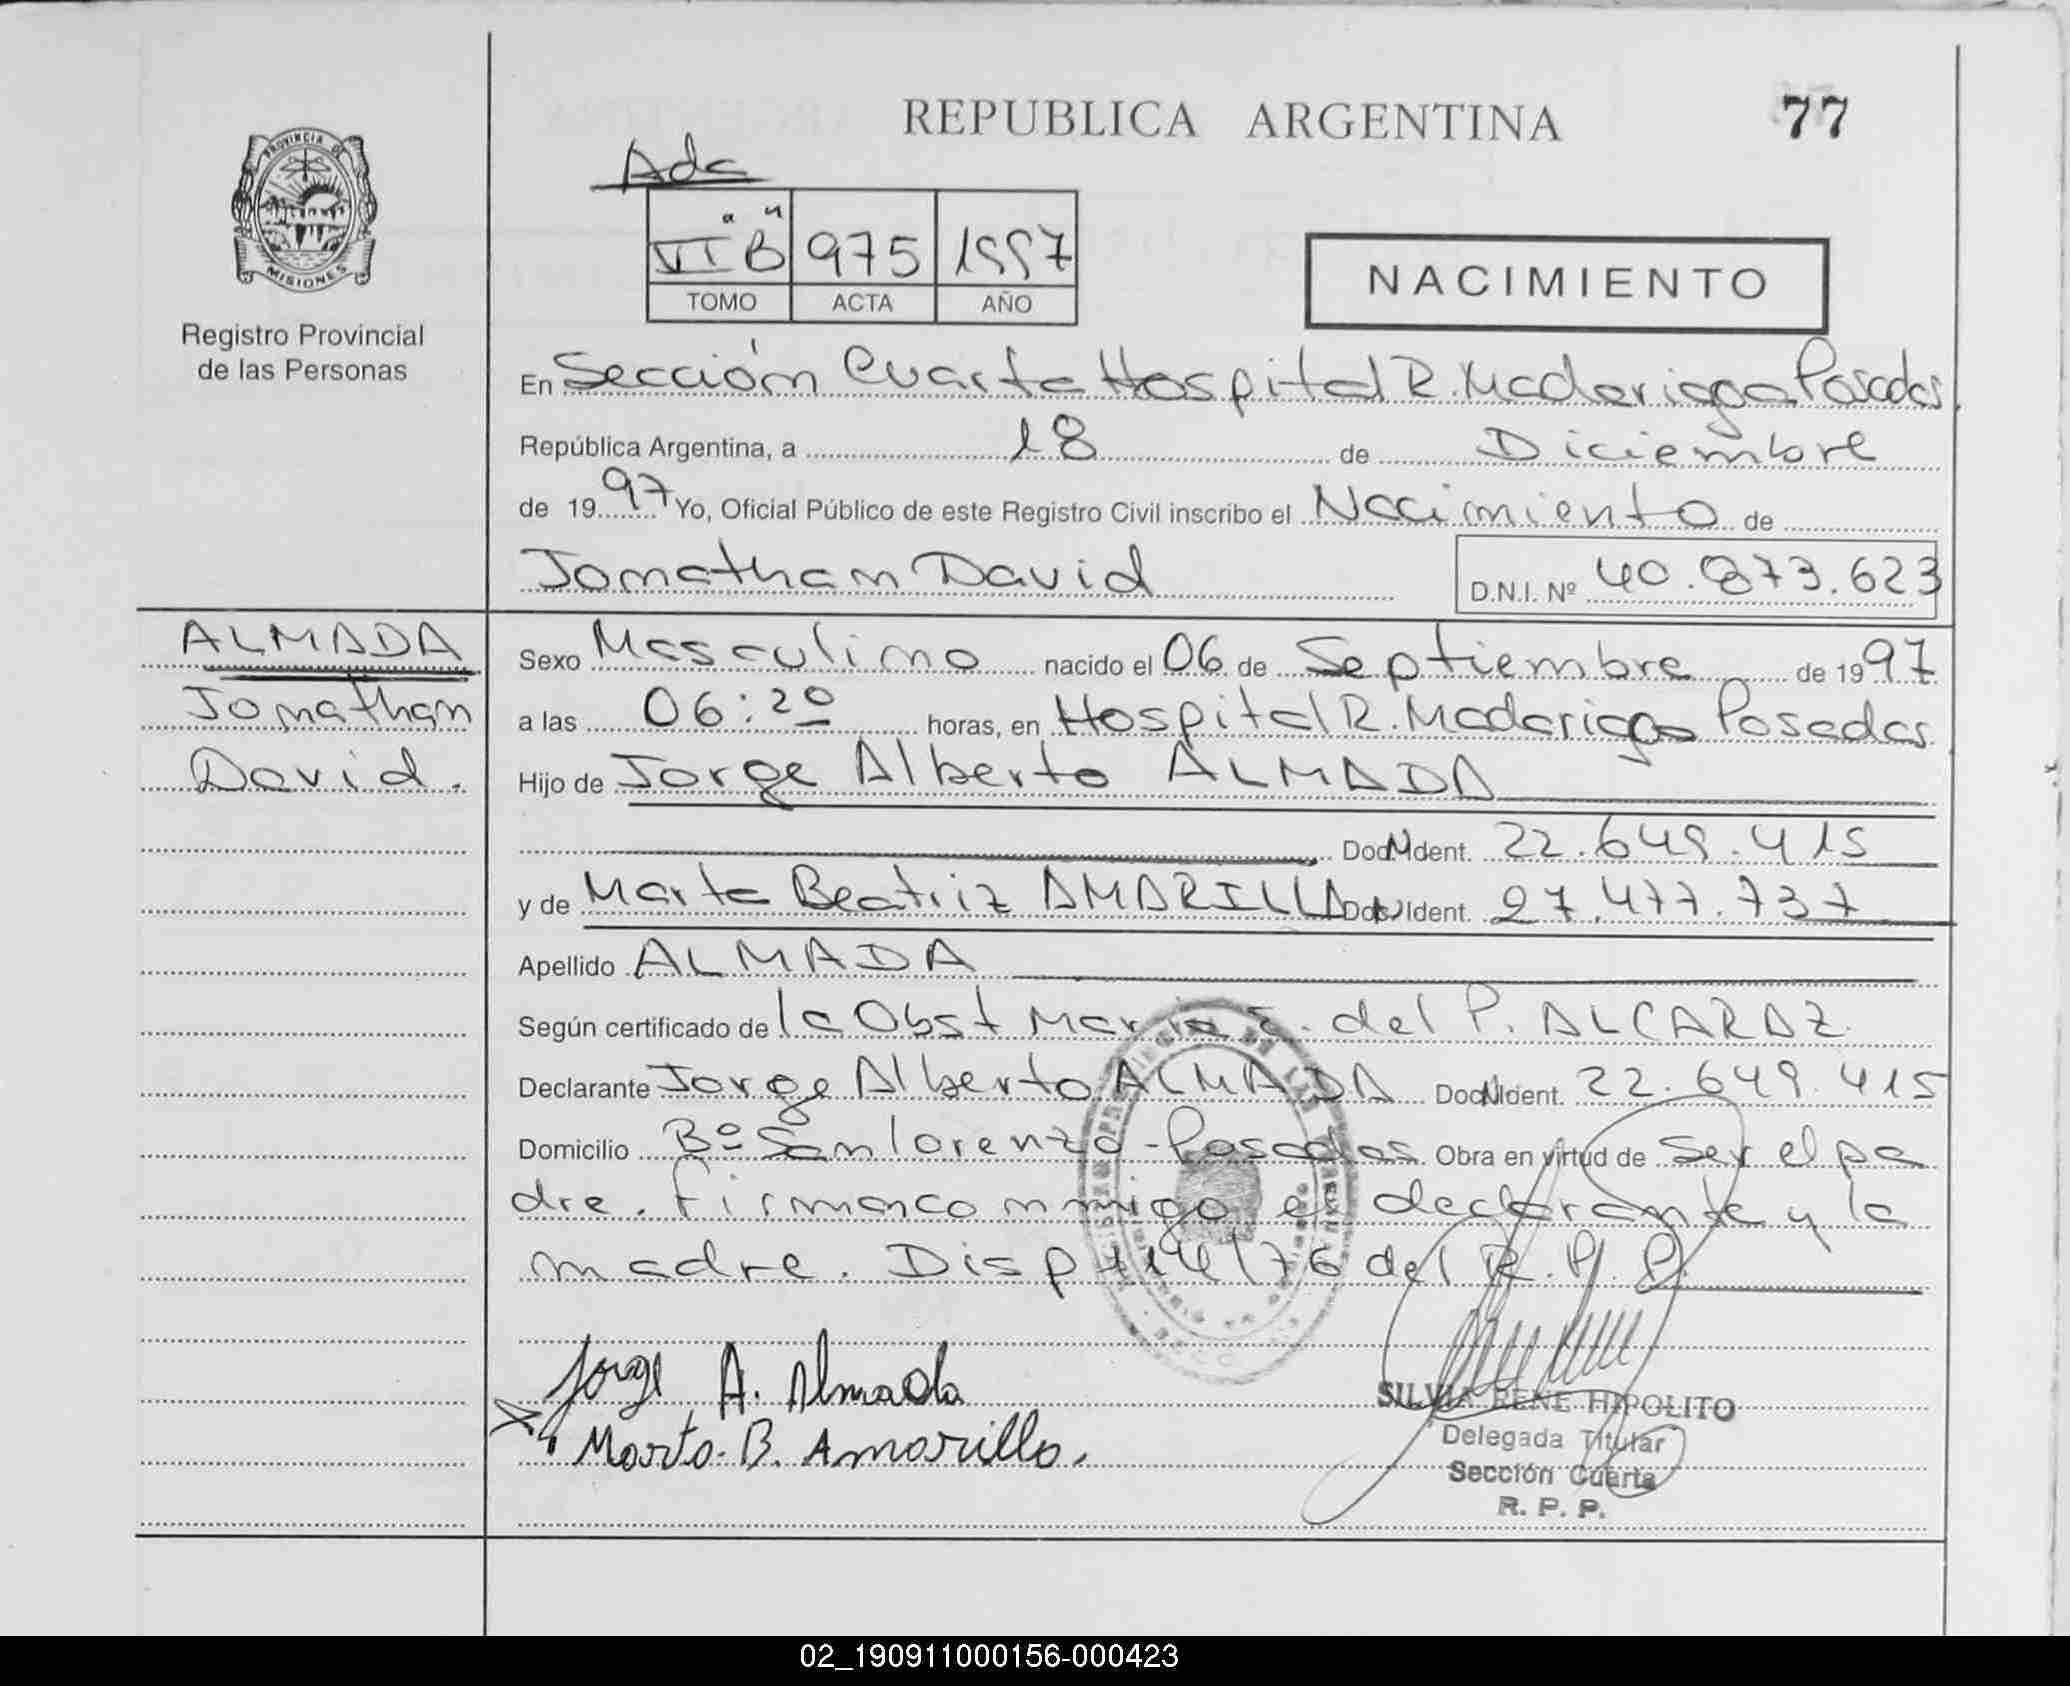 REPUBLICA ARGENTINA
77
PROVINCIA DE
MISIONES
Registro Provincial
de las Personas
Adc
VI "B" 975 1997
TOMO ACTA AÑO
NACIMIENTO
En Sección Cuarta Hospital R. Madariaga Posadas.
República Argentina, a 18 de Diciembre
de 1997 Yo, Oficial Público de este Registro Civil inscribo el Nacimiento de
Jonathan David D.N.I. Nº 40.873.623
ALMADA
Jonathan
David.
Sexo Masculino nacido el 06 de Septiembre de 1997
a las 06:20 horas, en Hospital R. Madariaga Posadas
Hijo de Jorge Alberto ALMADA
Doc. Ident. 22.649.415
y de Marta Beatriz AMARILLA Doc. Ident. 27.477.737
Apellido ALMADA
Según certificado de la Obst Maria E. del P. ALCARAZ
Declarante Jorge Alberto ALMADA Doc. Ident. 22.649.415
Domicilio Bº San lorenzo - Posadas Obra en virtud de ser el pa
dre. firman conmigo el declarante y la
madre. Disp 114/76 del R.P.P.
Jorge A. Almada
Marta B. Amarilla.
SILVIA RENE HIPOLITO
Delegada Titular
Sección Cuarta
R. P. P.
02_190911000156-000423